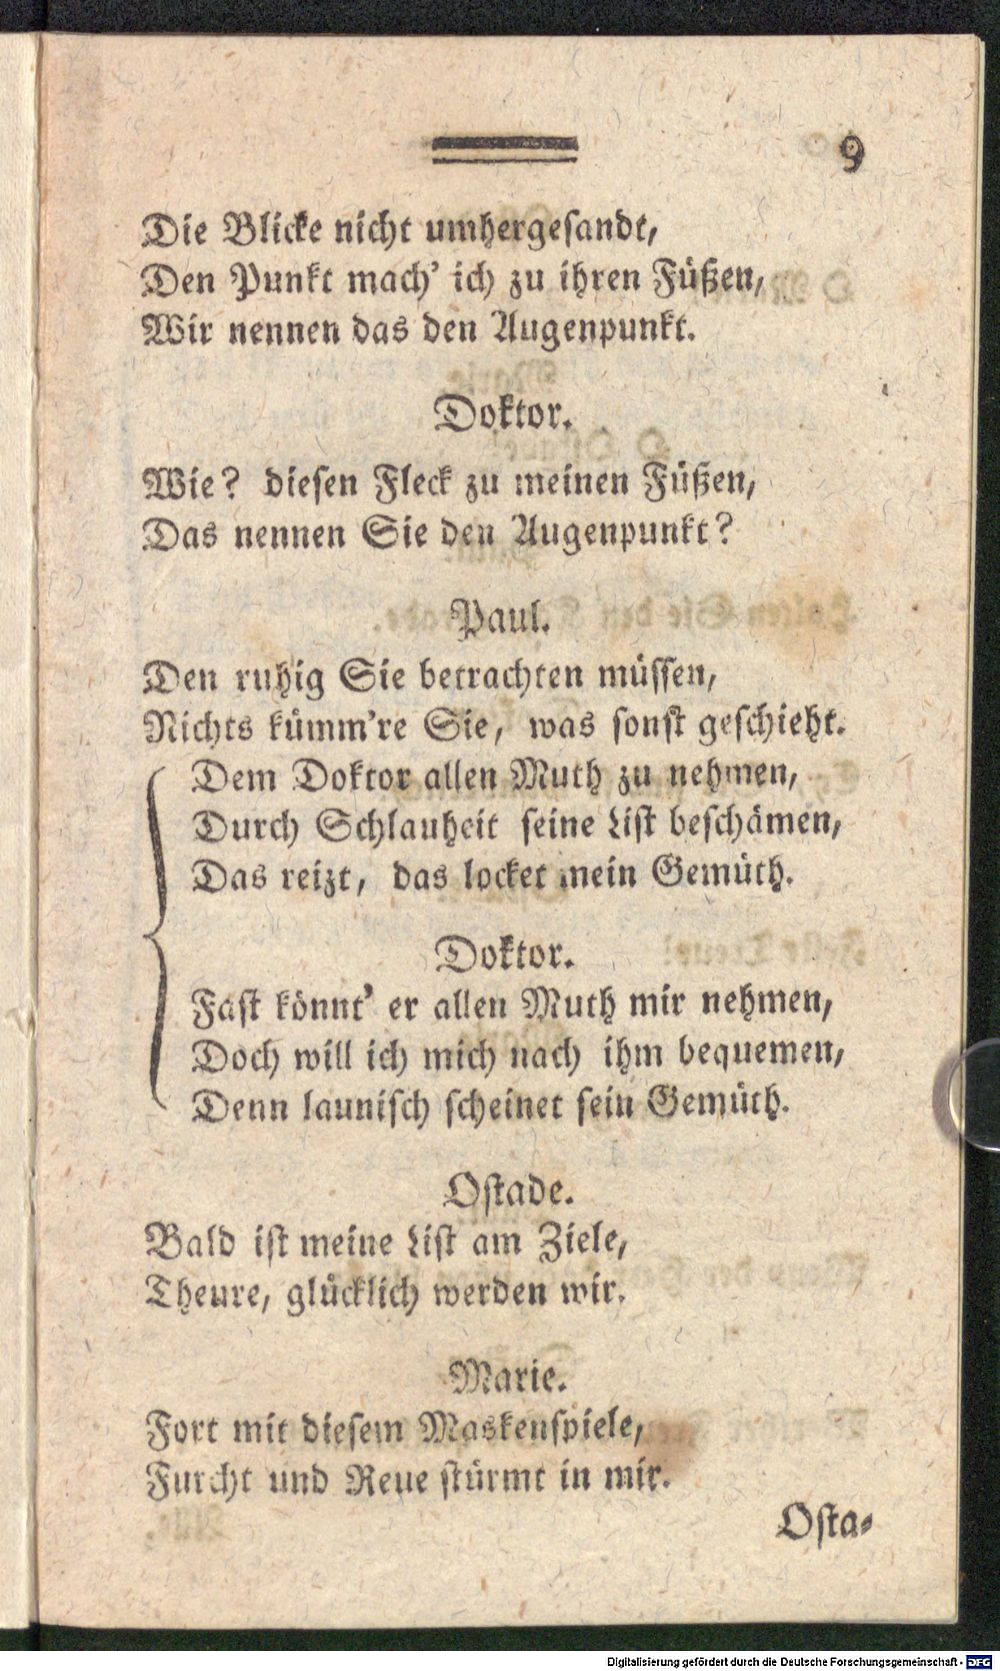 9
Die Blicke nicht umhergesandt,
Den Punkt mach' ich zu ihren Füßen,
Wir nennen das den Augenpunkt.
Doktor.
Wie? diesen Fleck zu meinen Füßen,
Das nennen Sie den Augenpunkt?
Paul.
Den ruhig Sie betrachten müssen,
Nichts kümm're Sie, was sonst geschieht.
Dem Doktor allen Muth zu nehmen,
Durch Schlauheit seine List beschämen,
Das reizt, das locket mein Gemüth.
Doktor.
Fast könnt' er allen Muth mir nehmen,
Doch will ich mich nach ihm bequemen,
Denn launisch scheinet sein Gemüth.
Ostade.
Bald ist meine List am Ziele,
Theure, glücklich werden wir.
Marie.
Fort mit diesem Maskenspiele,
Furcht und Reue stürmt in mir.
Osta-
Digitalisierung gefördert durch die Deutsche Forschungsgemeinschaft - DFG